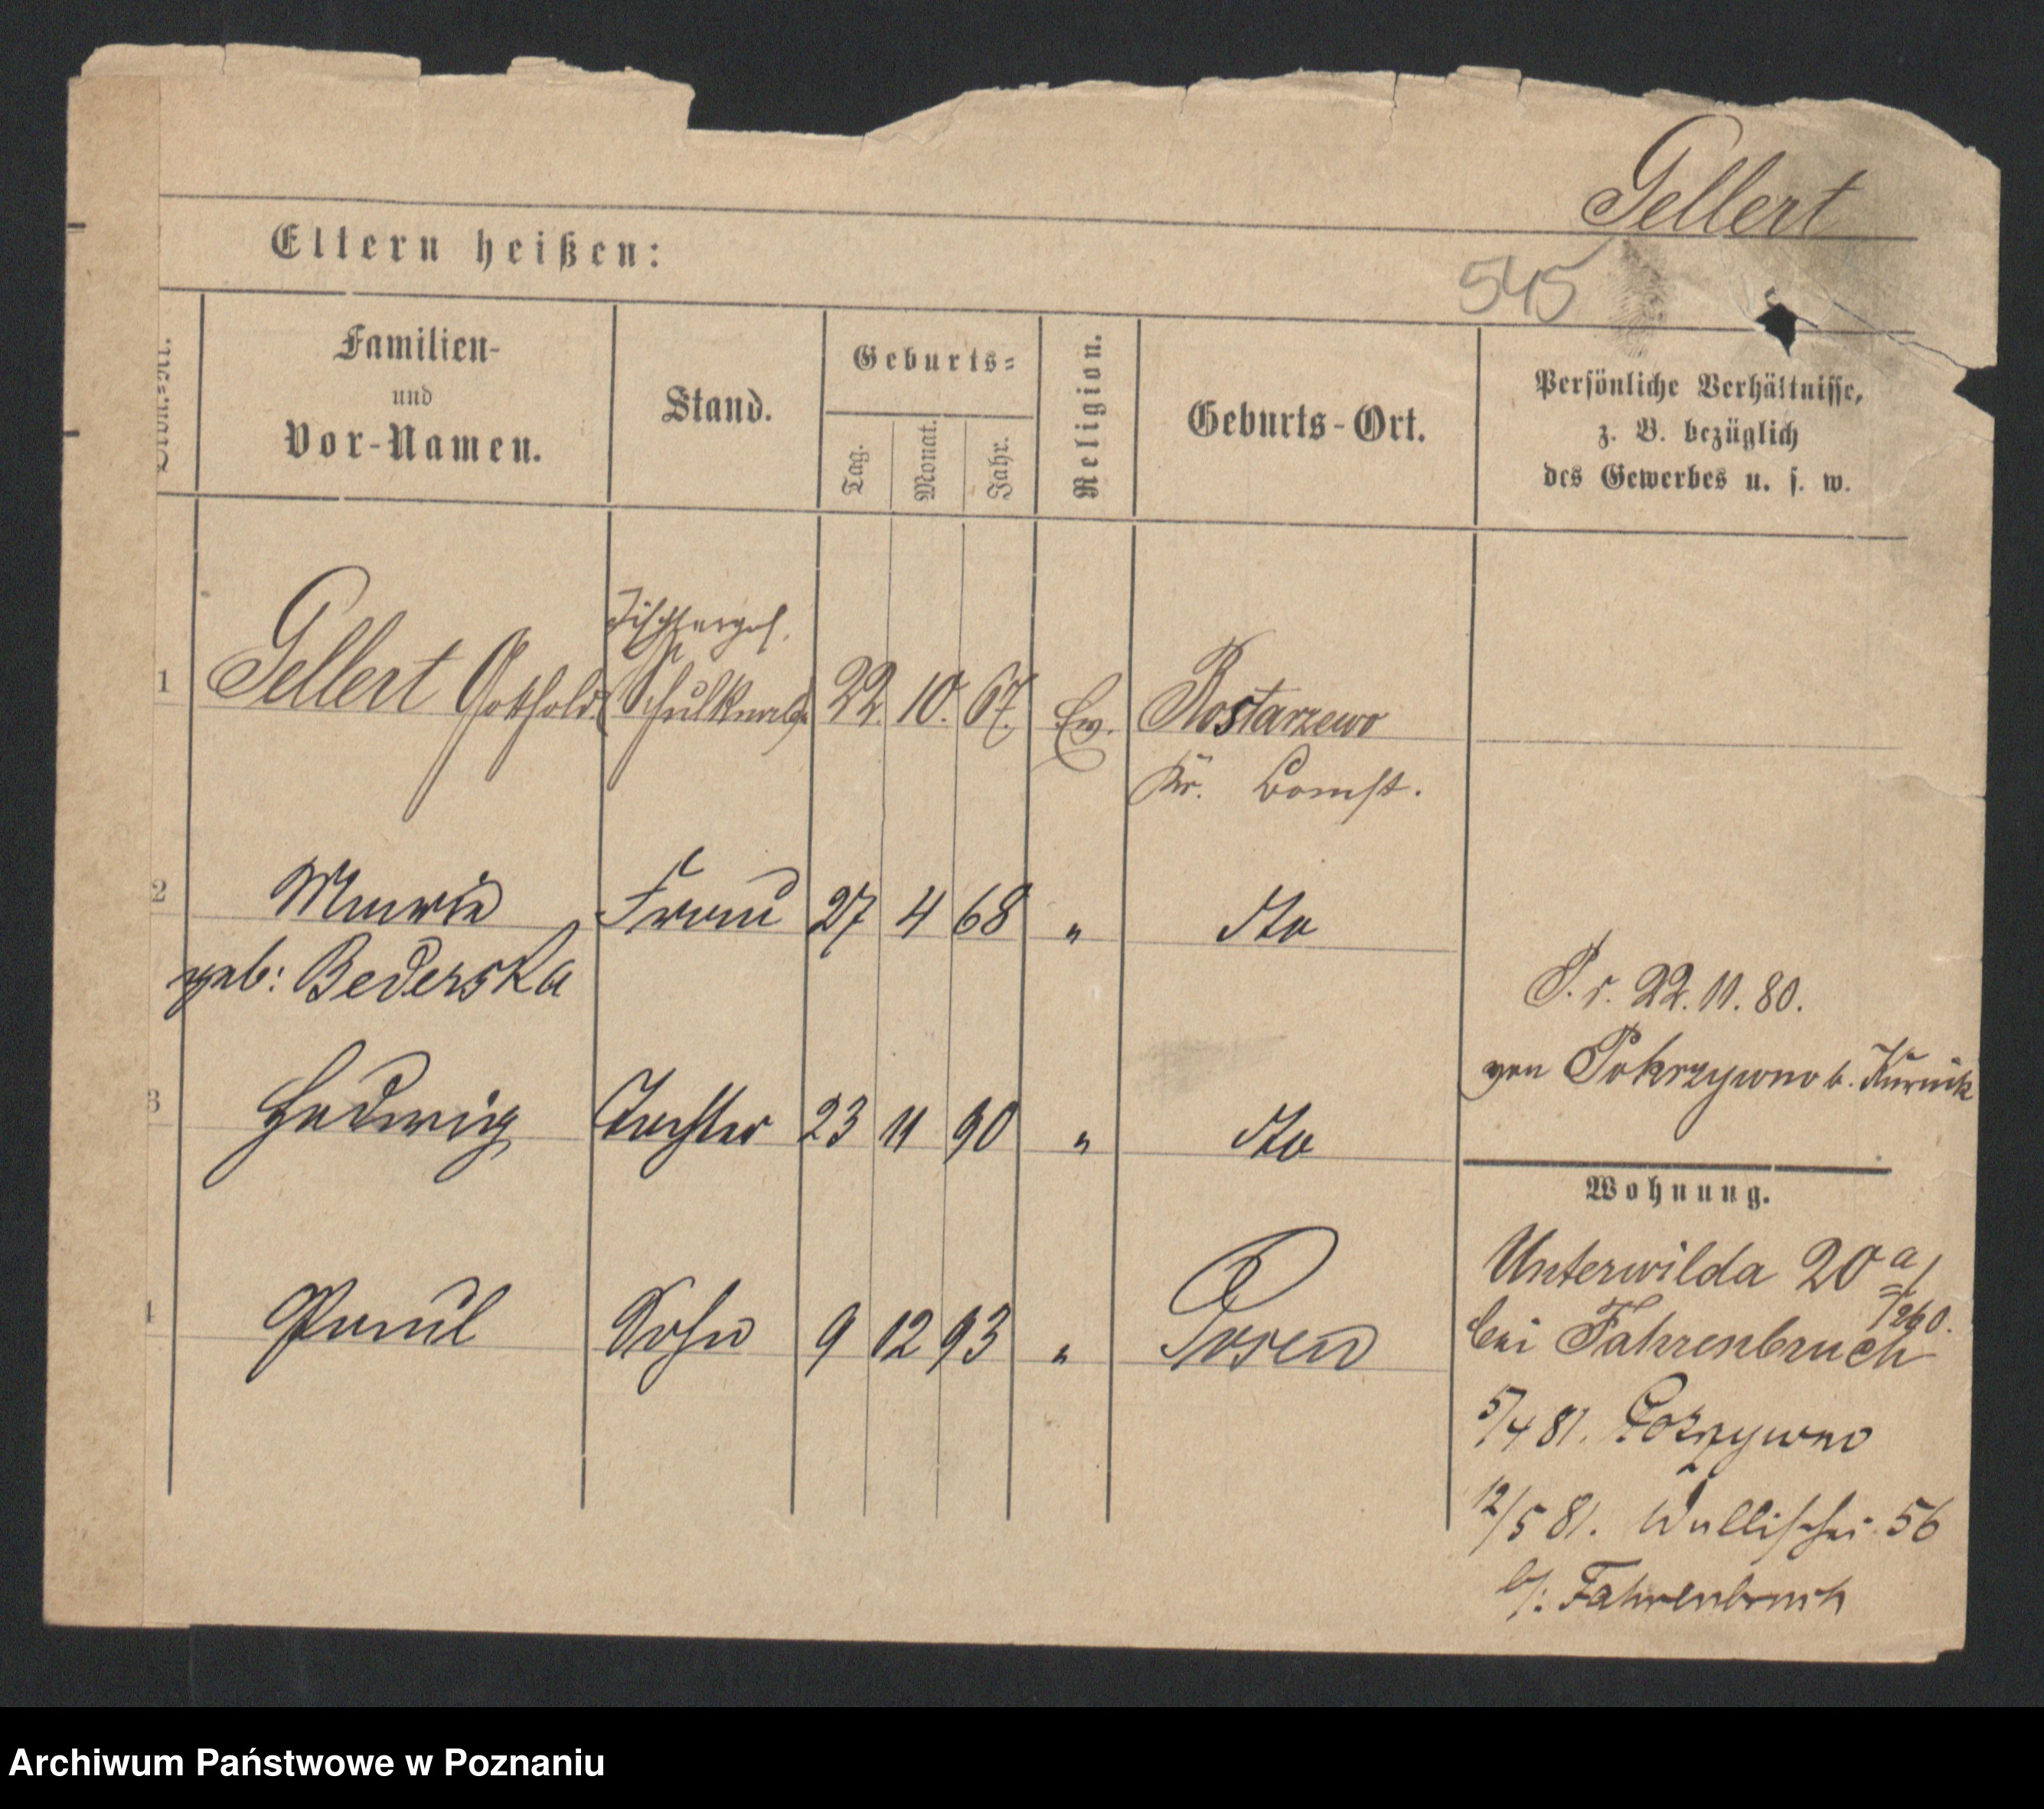 Gellert
Eltern heißen:
545
Familien-
und
Vor-Namen.
Stand.
Geburts-
Tag.
Monat.
Jahr.
Religion.
Geburts-Ort.
Persönliche Verhältnisse,
z. B. bezüglich
des Gewerbes u. s. w.
Tischlerges.
1 Gellert Gotthold Schulknabe 22. 10. 67. Ev. Rostarzewo
Kr. Bomst.
2 Marie Frau 27 4 68 " Dto
geb: Bederska
P. r. 22. 11. 80.
von Pokrzywno b. Kurnik
3 Hedwig Tochter 23 11 90 " Dto
Wohnung.
Unterwilda 20 a
bei Fahrenbruch
4 Paul Sohn 9 12 93 " Posen
5/4 81.
12/5 81. Wallischei 56
b/: Fahrenbruch
Archiwum Państwowe w Poznaniu